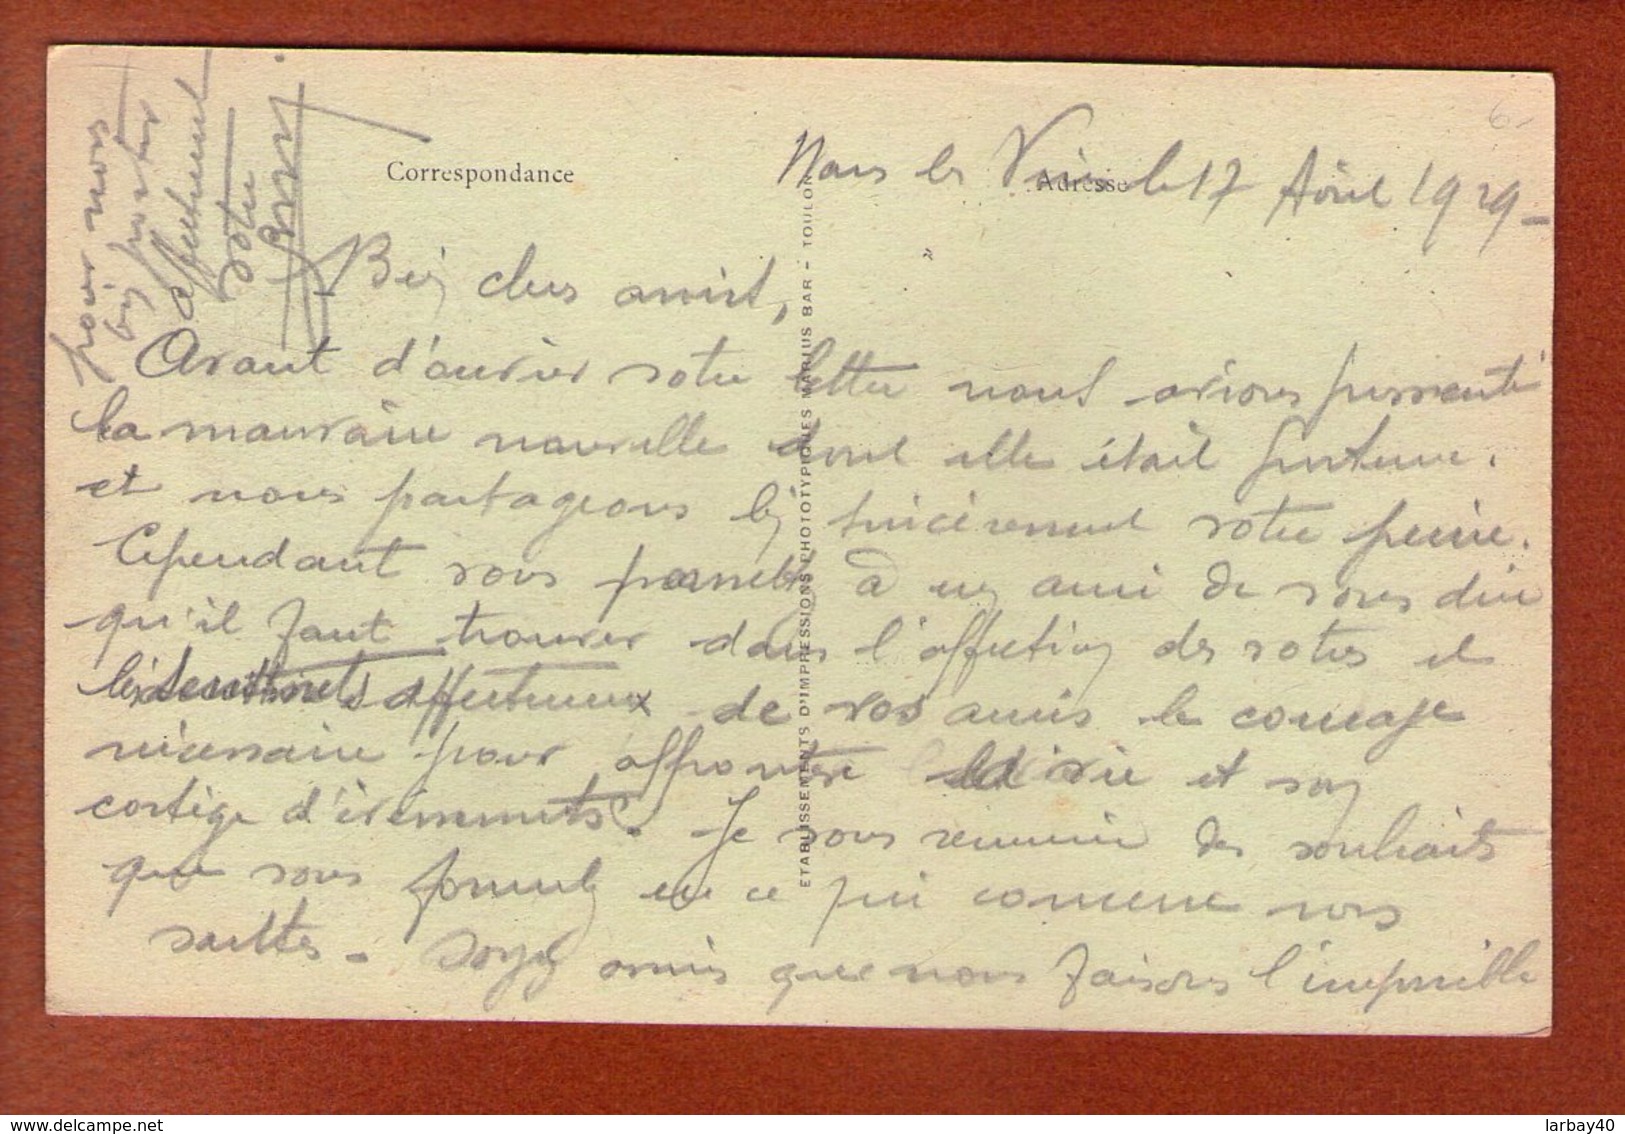 Correspondance
Adresse
Nans les Pins le 17 Avril 1929 -
Bien chers amis,
Avant d'ouvrir votre lettre nous avions pressenti
la mauvaise nouvelle dont elle était porteuse.
et nous partageons bien sincèrement votre peine.
Cependant vous permettez à un ami de vous dire
qu'il faut trouver dans l'affection des votres et
les sentiments affectueux de vos amis le courage
nécessaire pour affronter la vie et son
cortège d'évènements. Je vous remercie des souhaits
que vous formulez en ce qui concerne nos
santés - Soyez amis que nous faisons l'impossible
pour nous
bien porter
affectueusement
votre
ETABLISSEMENTS D'IMPRESSIONS PHOTOTYPIQUES MARIUS BAR - TOULON
6-
delcampe.net
larbay40